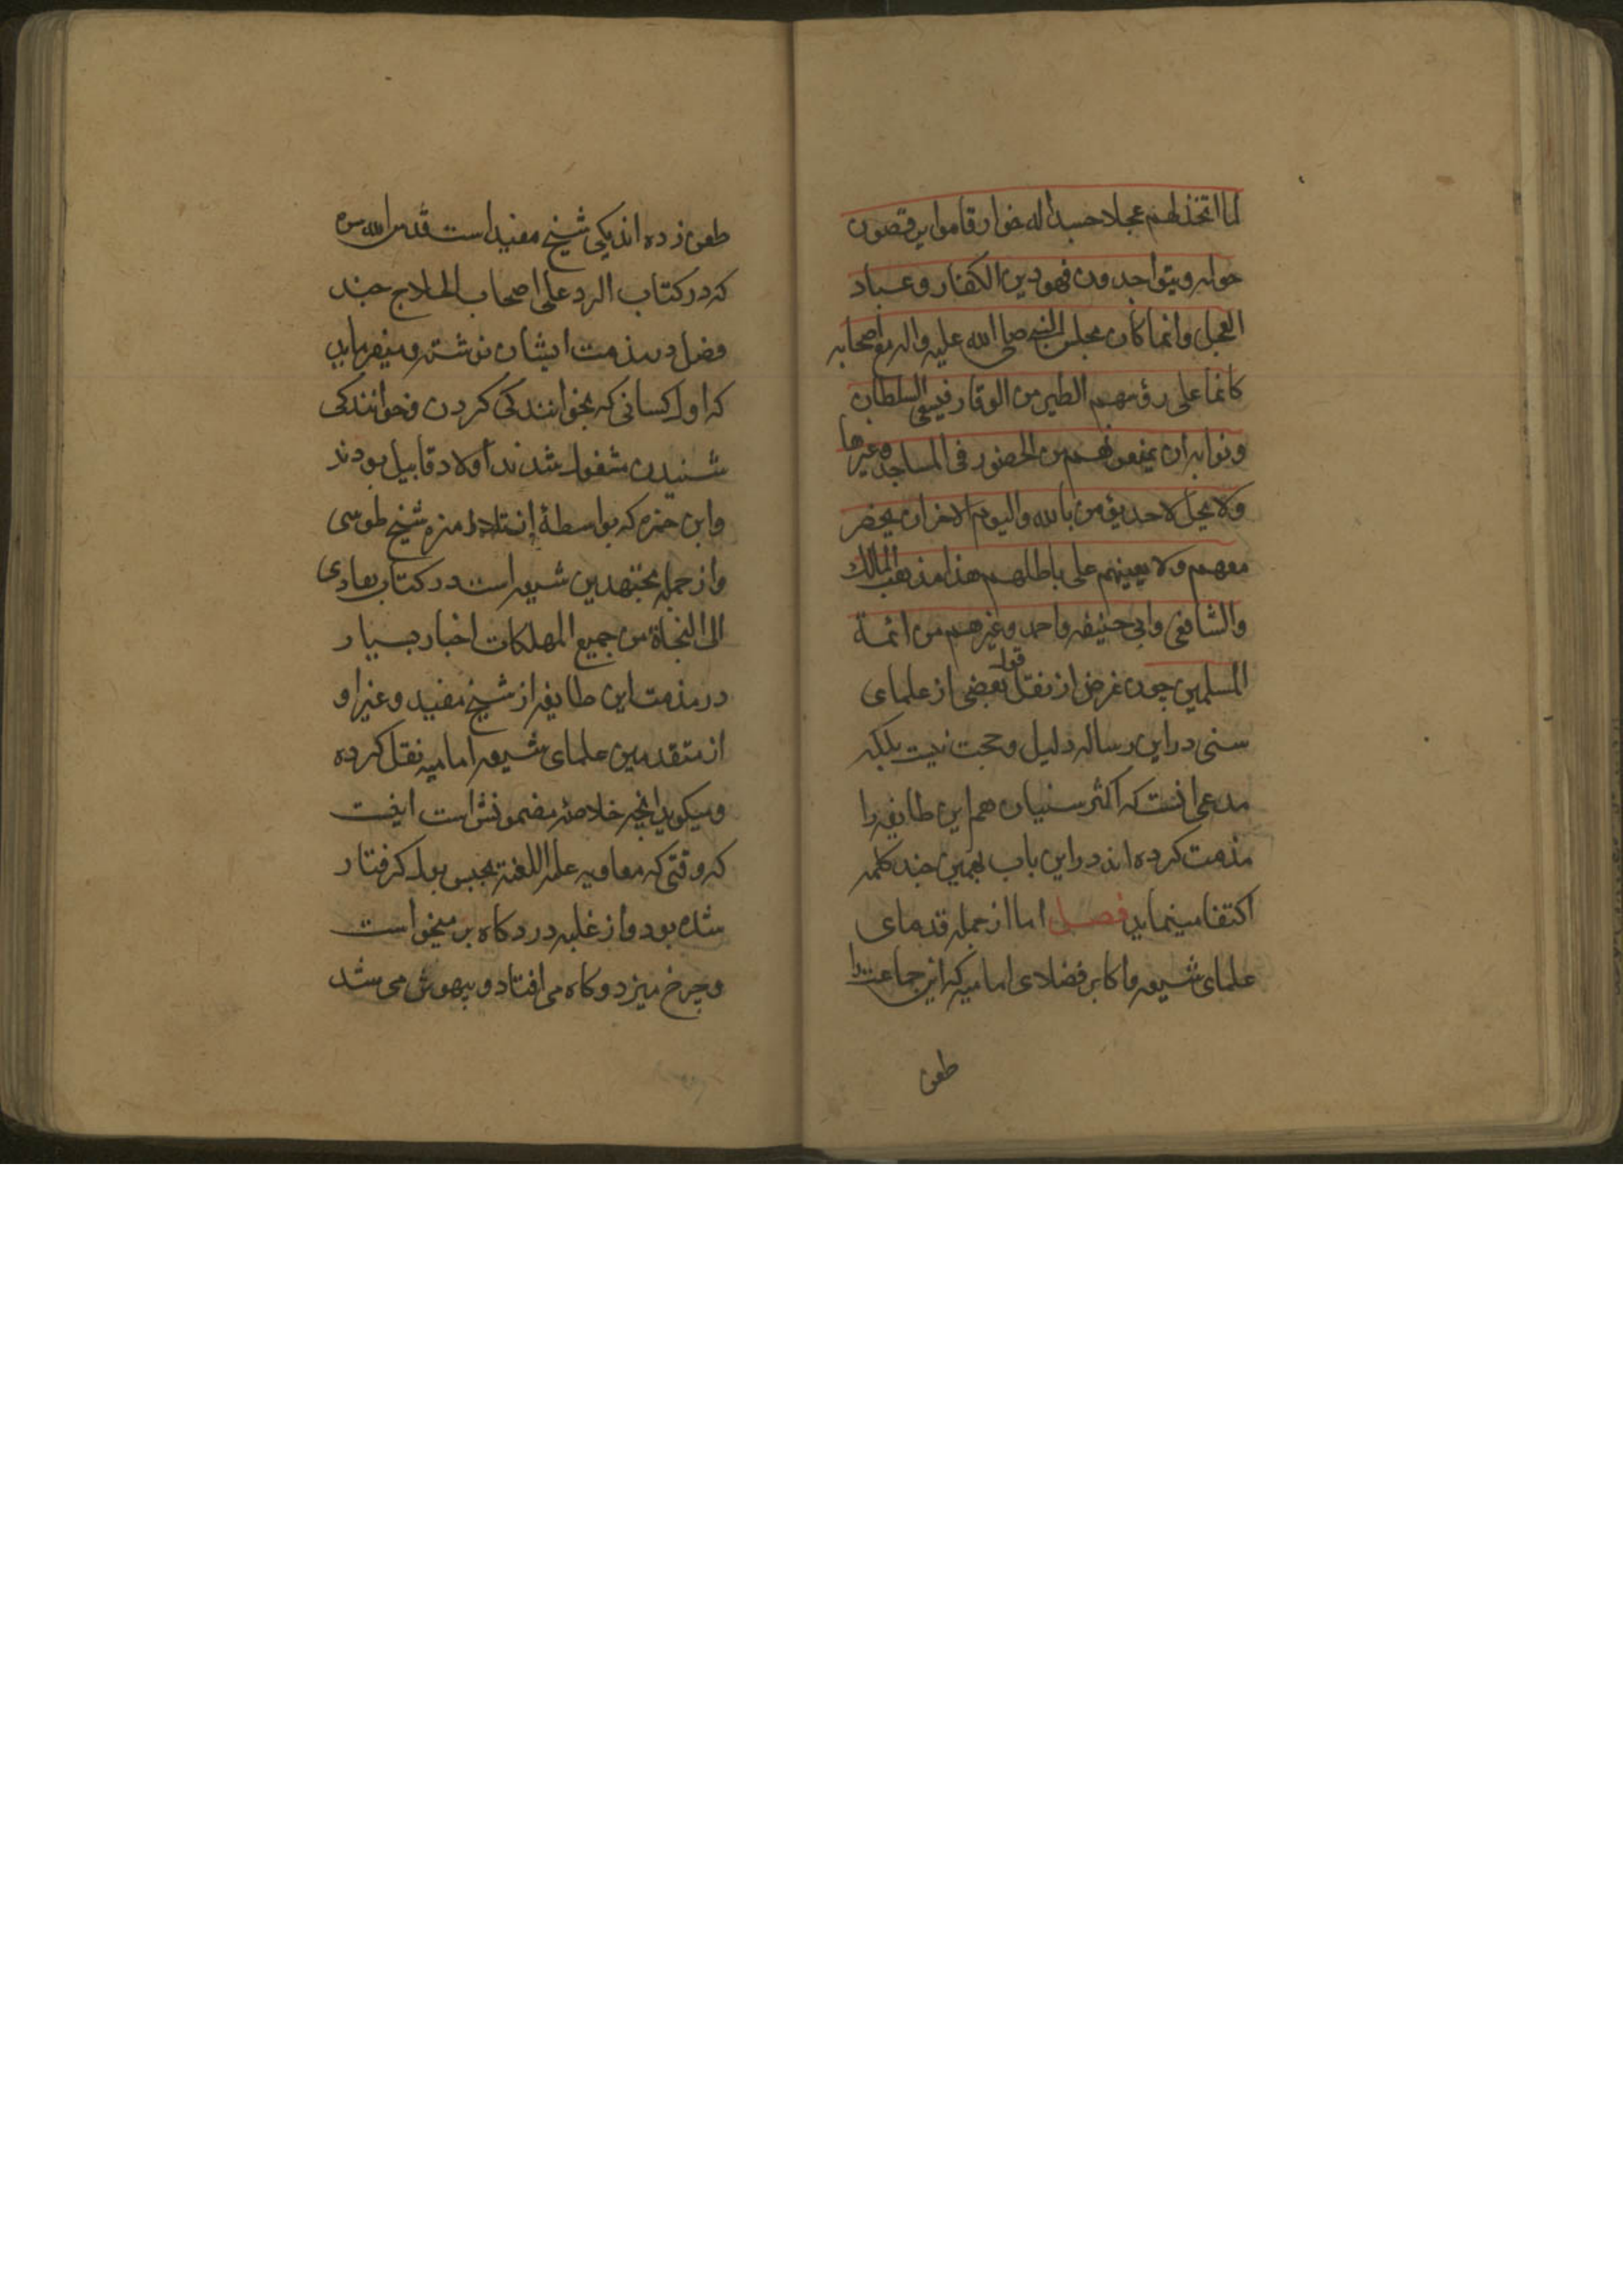 لما اتخذ لهم عجلا جسدا له خوار قاموا يرقصون
حوله ويتواجدون فهو دين الكفار وعباد
العجل وانما كان مجلس النبي صلى الله عليه واله مع اصحابه
كانما على رؤسهم الطير من الوقار فينبغي السلطان
ونوابه ان يمنعونهم من الحضور في المساجد وغيرها
ولا يحل لاحد يؤمن بالله واليوم الاخر ان يحضر
معهم ولا يعينهم على باطلهم هذا مذهب المالك
والشافعي وابي حنيفه واحمد وغيرهم من ائمة
المسلمين چون غرض از نقل قول بعضى از علماى
سنى در اين رساله دليل و حجت نيست بلكه
مدعى انست كه اكثر سنيان هم اين طايفه را
مذمت كرده اند در اين باب بهمين چند كلمه
اكتفا مينمايد فصل اما از جمله قدماى
علماى شيعه و اكابر فضلاى اماميه كه اين جماعت را
طعن
طعن زده اند يكى شيخ مفيد است قدس الله سره
كه در كتاب الرد على اصحاب الحلاج چند
فصل در مذمت ايشان نوشته و ميفرمايد
كه اول كسانى كه بخوانندكى كردن و خوانندكى
شنيدن مشغول شدند اولاد قابيل بودند
و ابن حمزه كه بواسطهٔ از تلامذه شيخ طوسى
و از جمله مجتهدين شيعه است در كتاب هادى
الى النجاة من جميع المهلكات اخبار بسيار
در مذمت اين طايفه از شيخ مفيد و غير او
از متقدمين علماى شيعه اماميه نقل كرده
و ميكويد انچه خلاصه مضمونش است اينست
كه وقتى كه معاويه عليه اللعنة بحبس بول كرفتار
شده بود و از غلبه درد كاه بر ميخواست
و چرخ ميزد و كاه مى افتاد و بيهوش مى شد